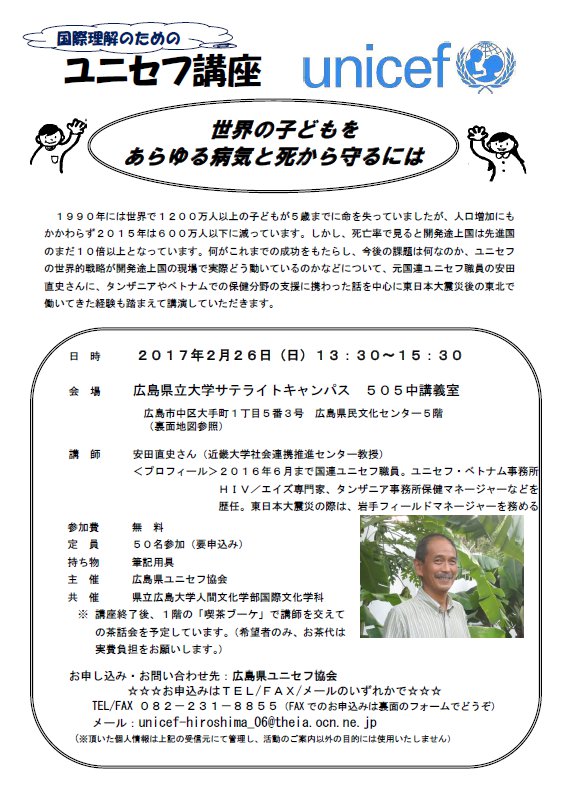 国際理解のための
ユニセフ講座
unicef
世界の子どもを
あらゆる病気と死から守るには
１９９０年には世界で１２００万人以上の子どもが５歳までに命を失っていましたが、人口増加にも
かかわらず２０１５年は６００万人以下に減っています。しかし、死亡率で見ると開発途上国は先進国
のまだ１０倍以上となっています。何がこれまでの成功をもたらし、今後の課題は何なのか、ユニセフ
の世界的戦略が開発途上国の現場で実際どう動いているのかなどについて、元国連ユニセフ職員の安田
直史さんに、タンザニアやベトナムでの保健分野の支援に携わった話を中心に東日本大震災後の東北で
働いてきた経験も踏まえて講演していただきます。
日　時　２０１７年２月２６日（日）１３：３０～１５：３０
会　場　広島県立大学サテライトキャンパス　５０５中講義室
広島市中区大手町１丁目５番３号　広島県民文化センター５階
（裏面地図参照）
講　師　安田直史さん（近畿大学社会連携推進センター教授）
＜プロフィール＞２０１６年６月まで国連ユニセフ職員。ユニセフ・ベトナム事務所
ＨＩＶ／エイズ専門家、タンザニア事務所保健マネージャーなどを
歴任。東日本大震災の際は、岩手フィールドマネージャーを務める
参加費　無　料
定　員　５０名参加（要申込み）
持ち物　筆記用具
主　催　広島県ユニセフ協会
共　催　県立広島大学人間文化学部国際文化学科
※ 講座終了後、１階の「喫茶ブーケ」で講師を交えて
の茶話会を予定しています。（希望者のみ、お茶代は
実費負担をお願いします。）
お申し込み・お問い合わせ先：広島県ユニセフ協会
☆☆☆お申込みはＴＥＬ/ＦＡＸ/メールのいずれかで☆☆☆
TEL/FAX ０８２－２３１－８８５５（FAXでのお申込みは裏面のフォームでどうぞ）
メール：unicef-hiroshima_06@theia.ocn.ne.jp
（※頂いた個人情報は上記の受信元にて管理し、活動のご案内以外の目的には使用いたしません）